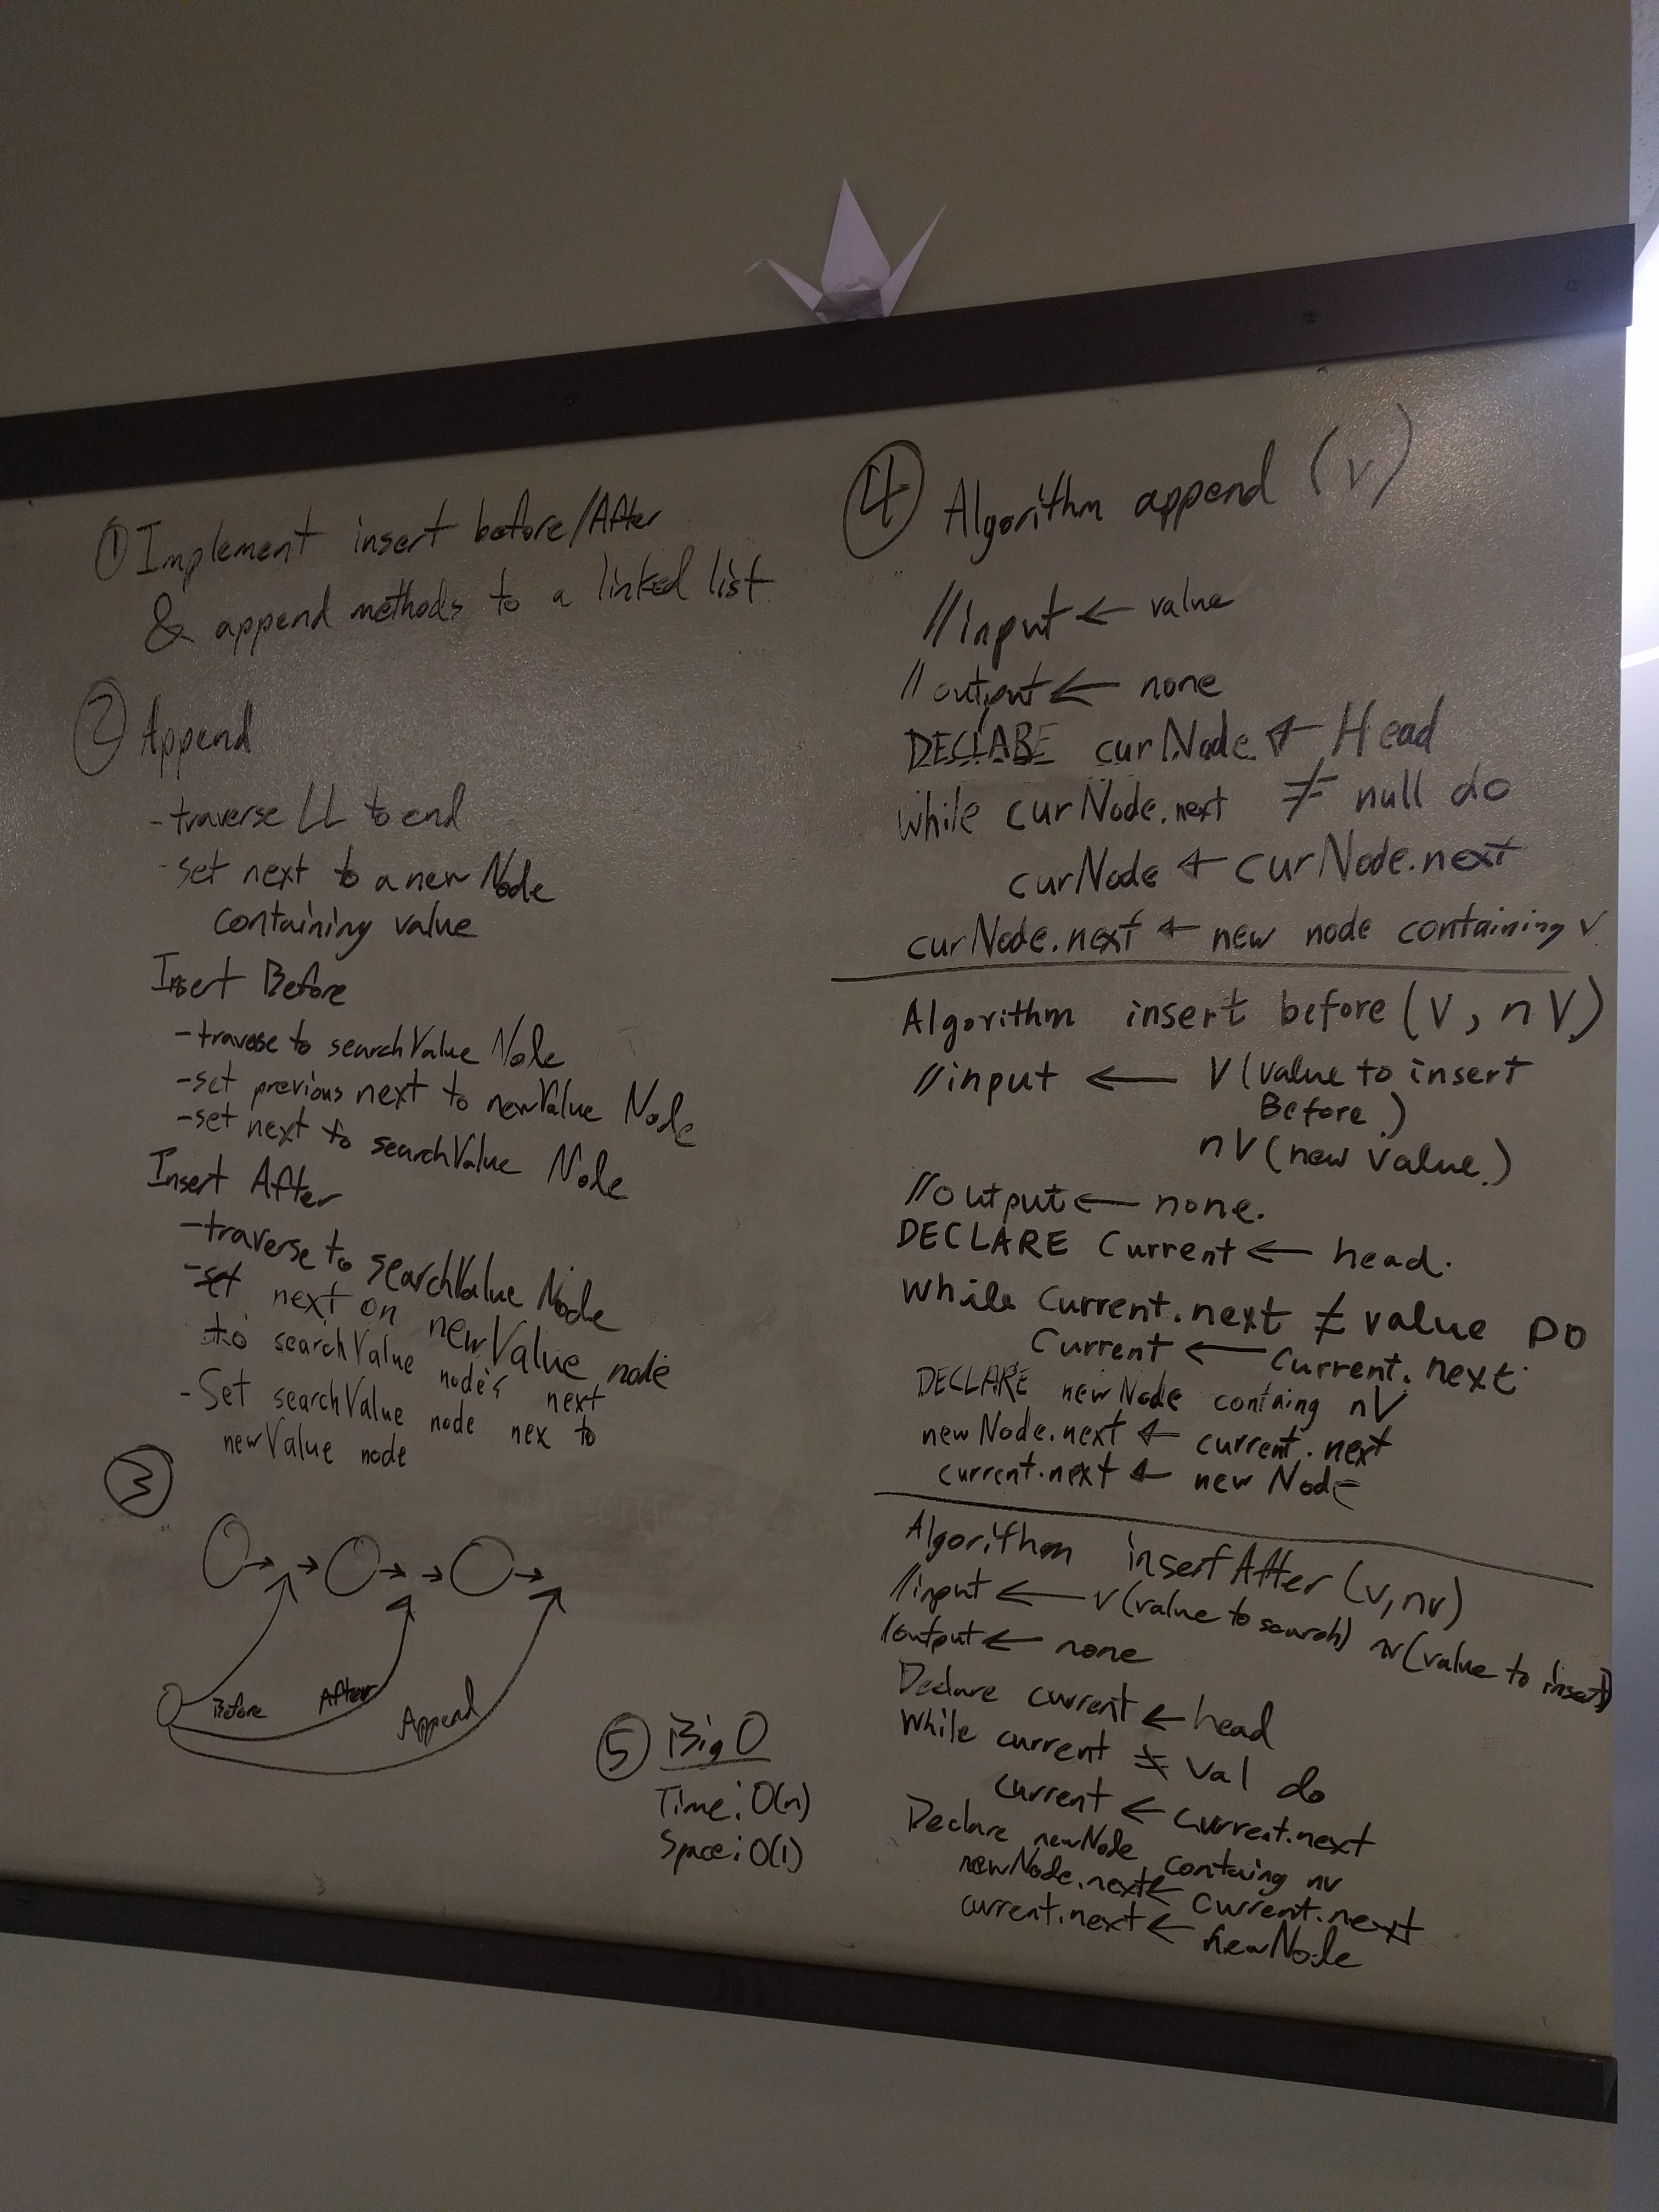 ① Implement insert before/After
& append methods to a linked list
② Append
-traverse LL to end
-set next to a new Node
containing value
Insert Before
-traverse to searchValue Node
-set previous next to newValue Node
-set next to searchValue Node
Insert After
-traverse to searchValue Node
-set next on newValue node
to searchValue node's next
-Set searchValue node nex to
newValue node
③
Before After Append
⑤ Big O
Time: O(n)
Space: O(1)
④ Algorithm append (v)
//input ← value
//output ← none
DECLARE curNode ← Head
while curNode.next ≠ null do
curNode ← curNode.next
curNode.next ← new node containing v
Algorithm insert before (V, nV)
//input ← V (value to insert
Before)
nV (new value)
//output ← none.
DECLARE Current ← head.
while Current.next ≠ value DO
Current ← Current.next
DECLARE newNode contining nV
newNode.next ← current.next
current.next ← new Node
Algorithm insertAfter (v, nv)
//input ← v (value to search) nv (value to insert)
//output ← none
Declare current ← head
While current ≠ val do
current ← current.next
Declare newNode containg nv
newNode.next ← current.next
current.next ← newNode